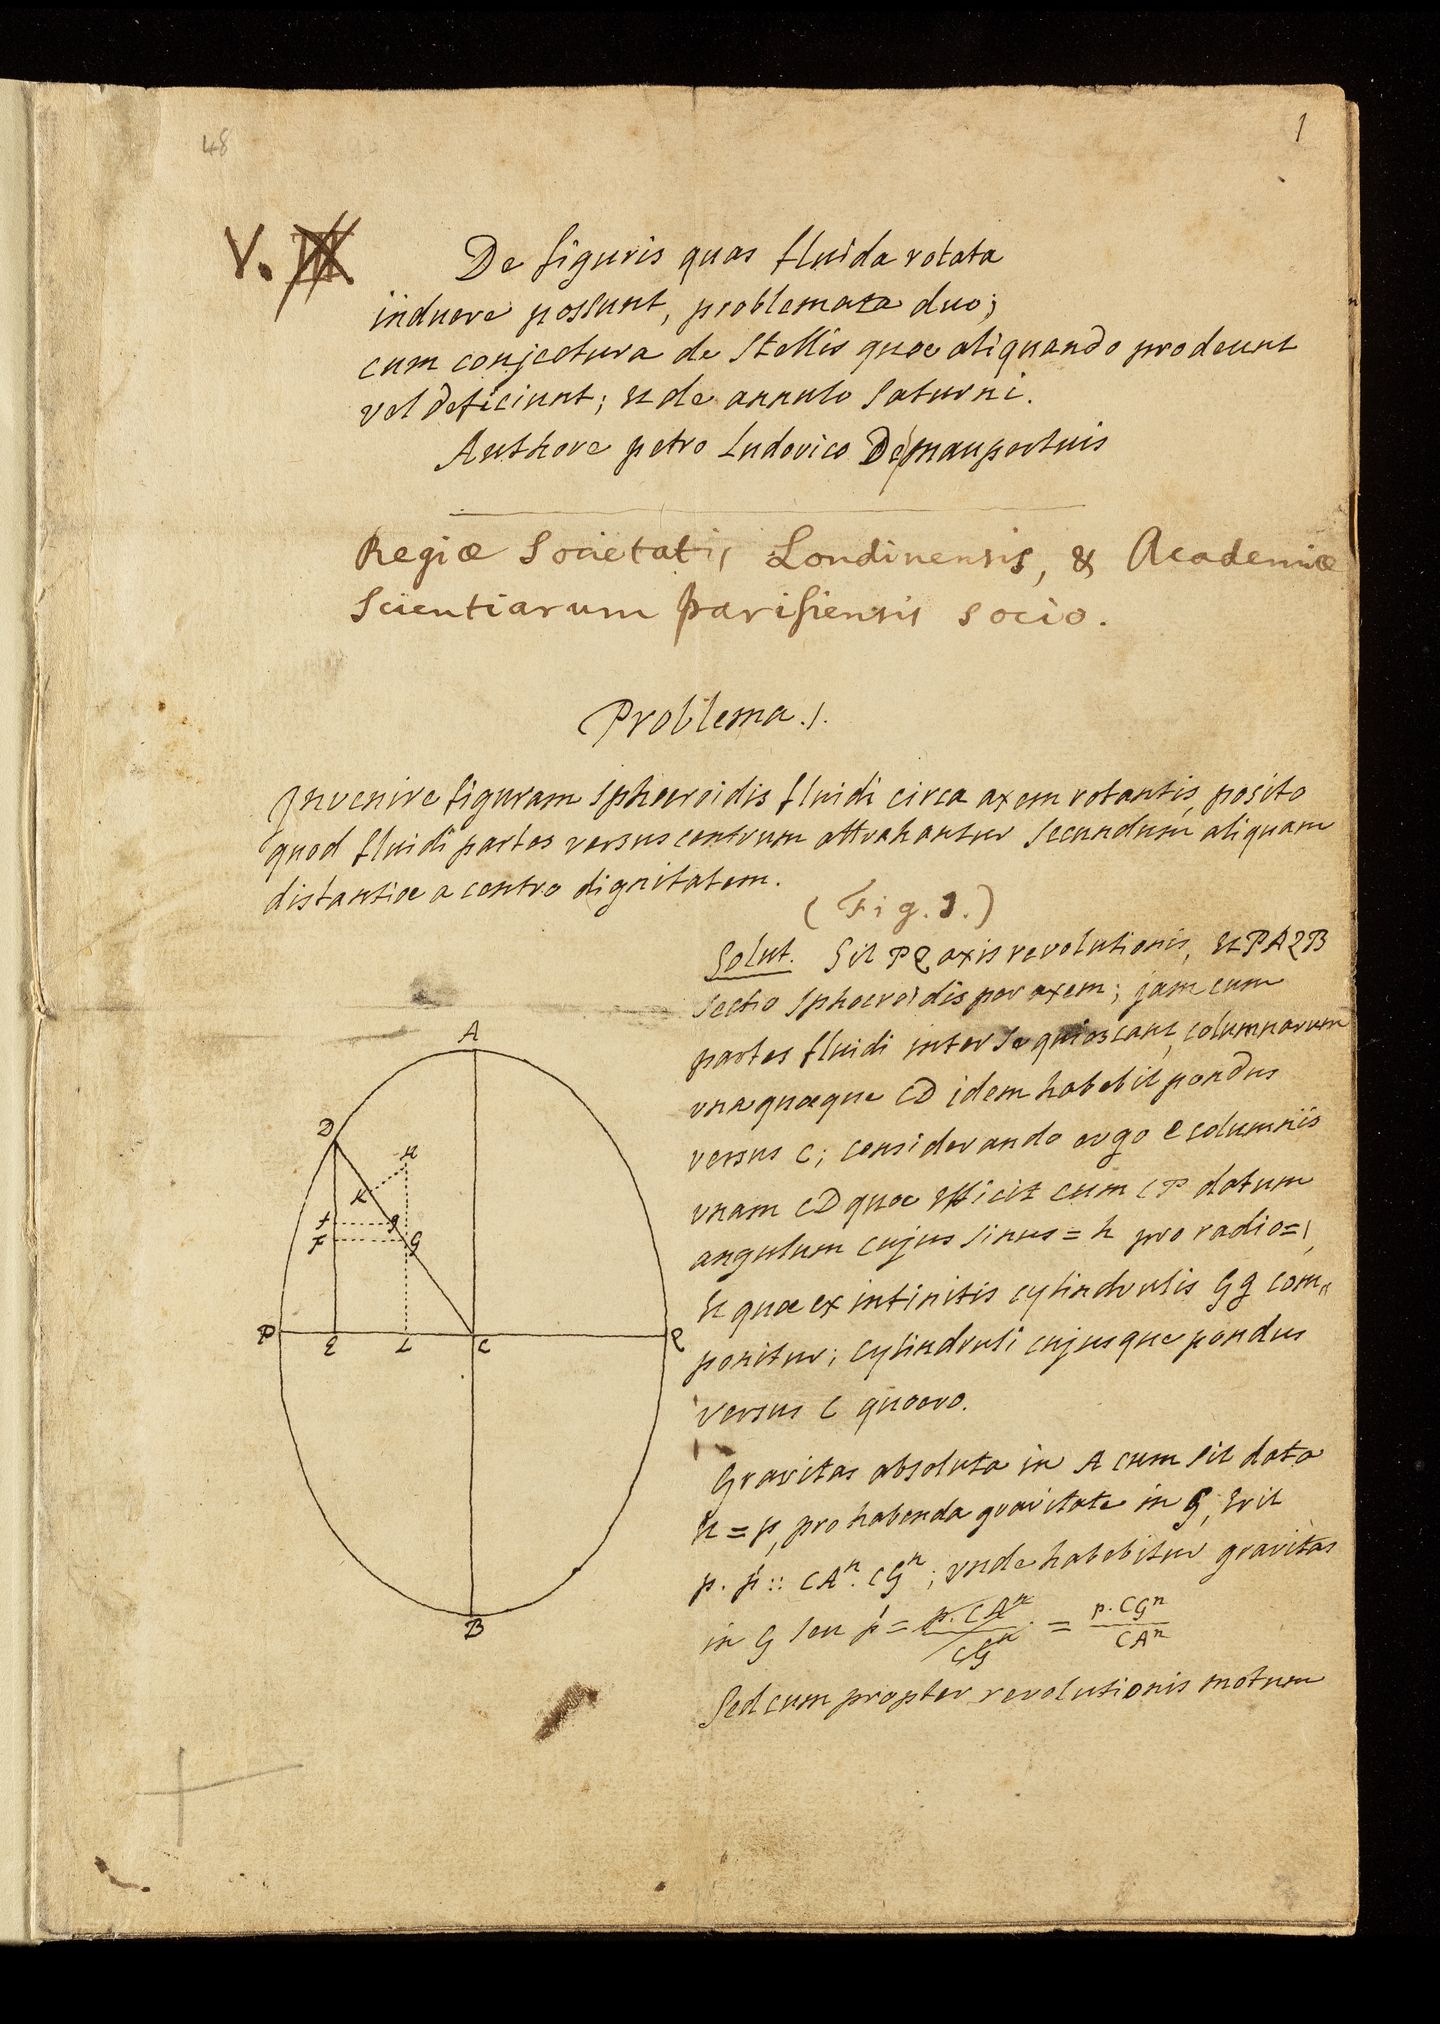 48
1
V. III
De figuris quas fluida rotata
induere possunt, problemata duo;
cum conjectura de Stellis quæ aliquando prodeunt
vel deficiunt; et de annulo Saturni.
Authore petro Ludovico De maupertuis
Regiæ Societatis Londinensis, & Academiæ
Scientiarum parisiensis socio.
Problema. 1.
Invenire figuram sphæroidis fluidi circa axem rotantis, posito
quod fluidi partes versus centrum attrahantur secundum aliquam
distantiæ a centro dignitatem.
(Fig. 1.)
Solut. Sit PQ axis revolutionis, et PAQB
sectio sphæroidis per axem; jam cum
partes fluidi inter se quiescant, columnarum
vnaquæque CD idem habebit pondus
versus C; considerando ergo e columnis
vnam CD quæ efficit cum CP datum
angulum cujus sinus = h pro radio = 1,
et quæ ex infinitis cylindrulis Gg com„
ponitur; cylindruli cujusque pondus
versus C quæro.
Gravitas absoluta in A cum sit data
et = p, pro habenda gravitate in G, erit
p. ṕ :: CAⁿ. CGⁿ; vnde habebitur gravitas
in G seu ṕ = p. CAⁿ / CGⁿ = p. CGⁿ / CAⁿ
Sed cum propter revolutionis motum
A
D
H
K
f
g
F
G
P
E
L
C
Q
B